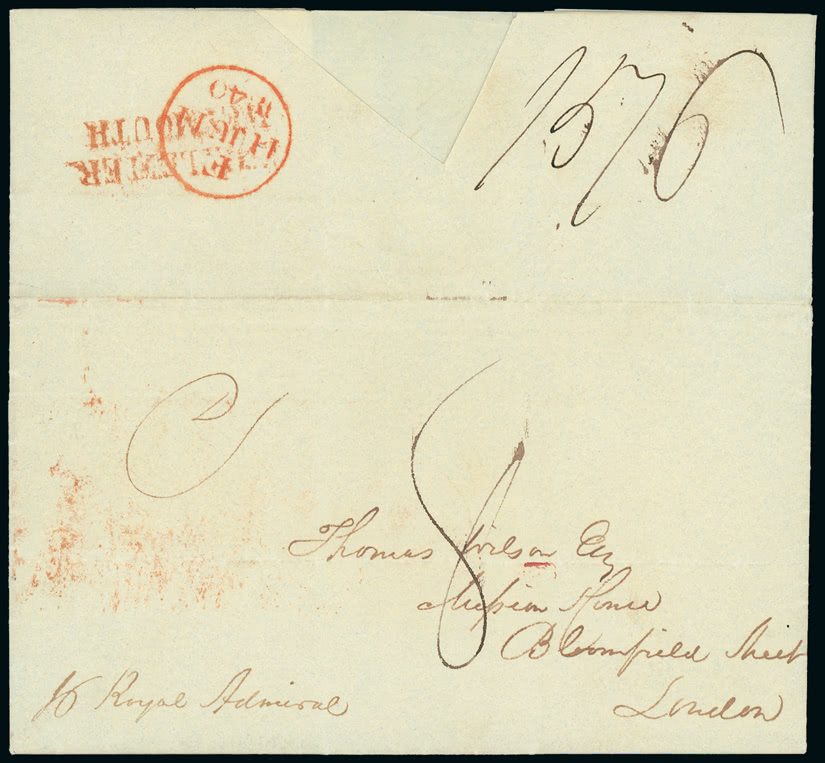 SHIP LETTER
PLYMOUTH
40
157
6
8
Thomas Wilson Esq
Mission House
Bloomfield Street
London
Royal Admiral